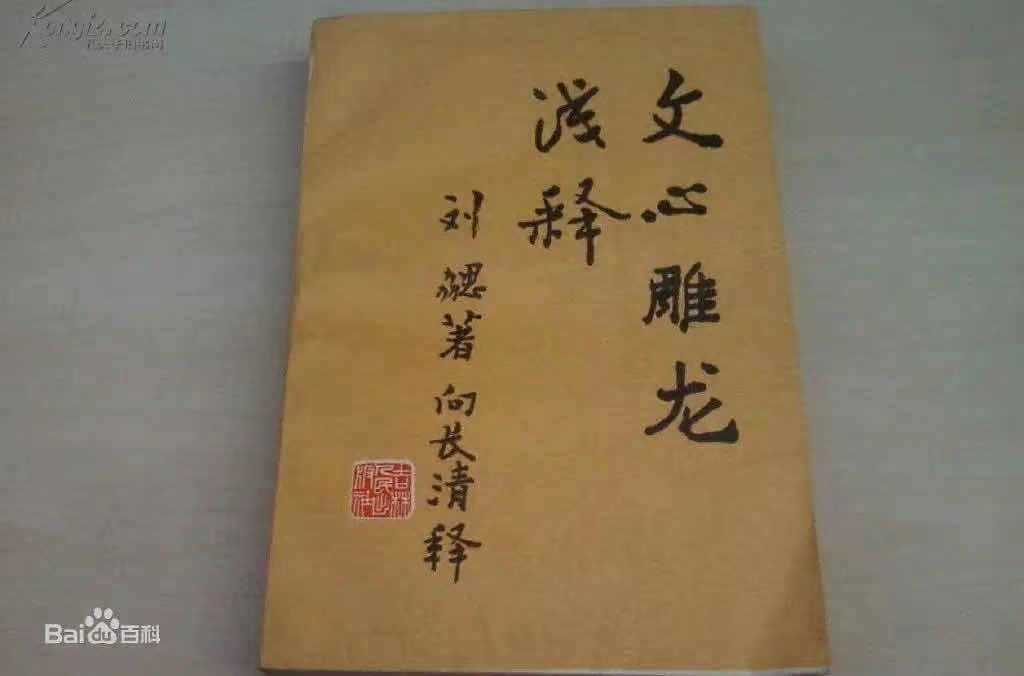 Kongfz.com
孔夫子旧书网
文心雕龙
浅释
刘勰著 向长清释
吉林人民出版社
Bai du 百科